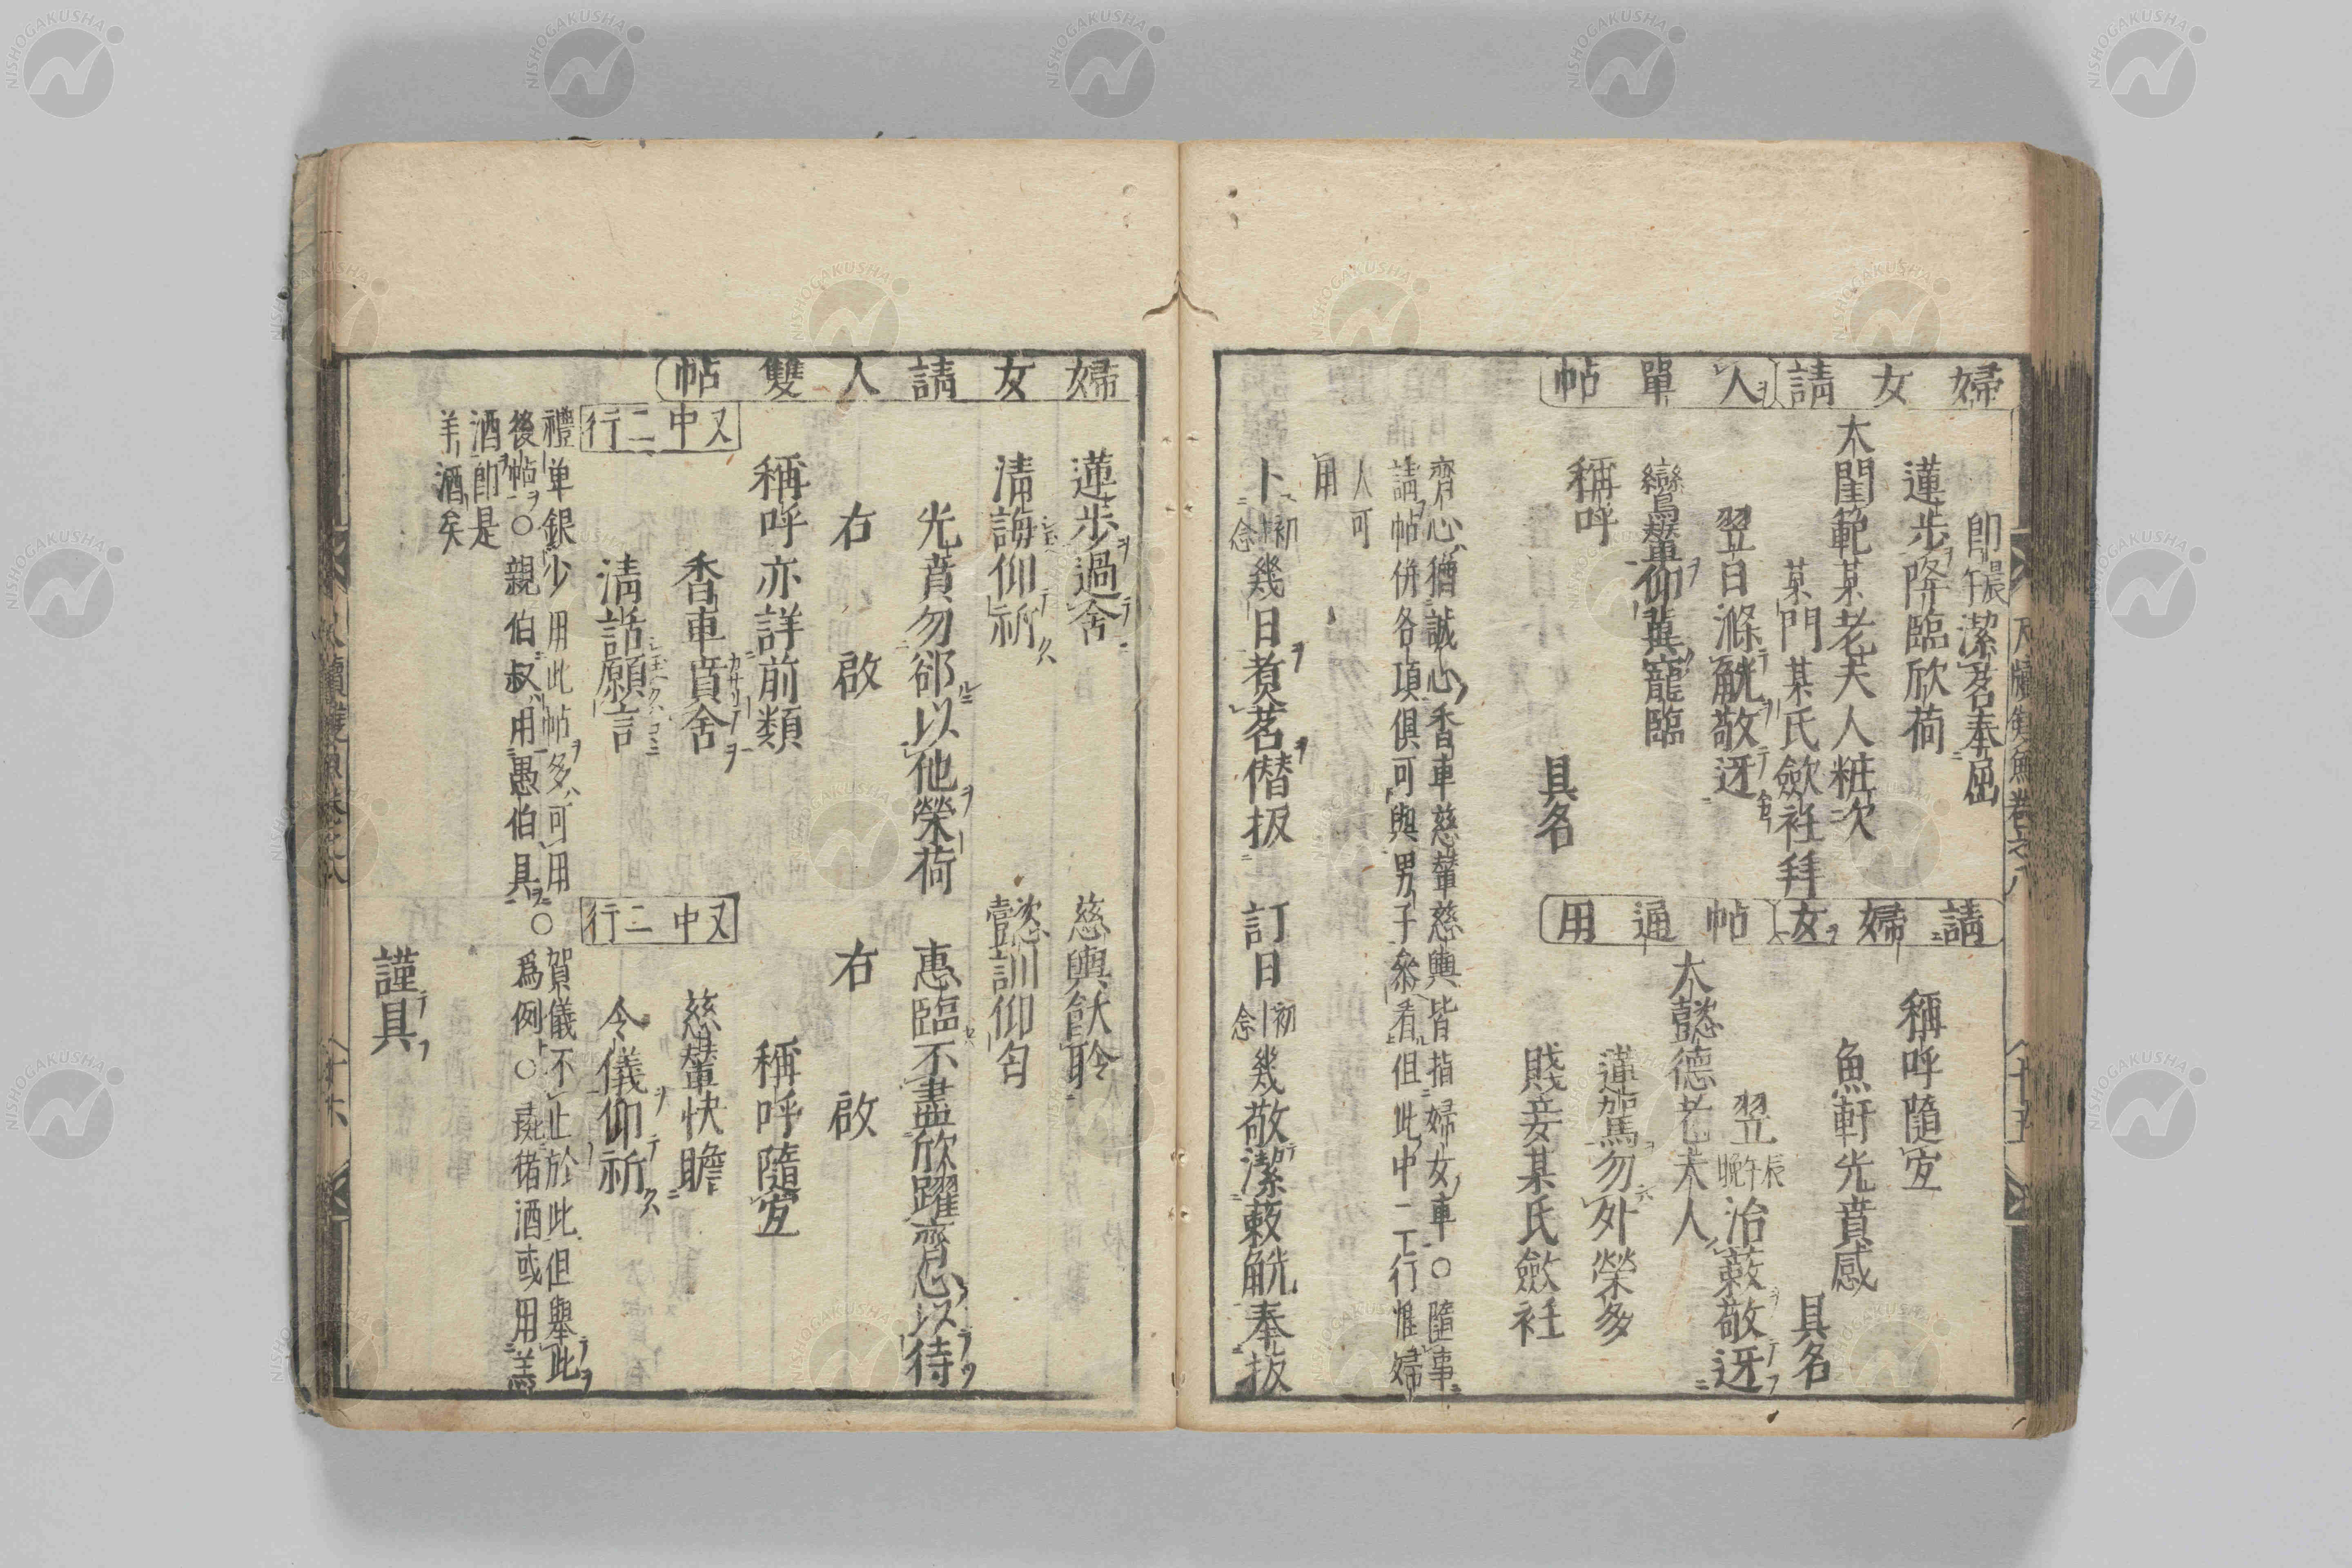 婦女請人單帖
卽晨午潔茗奉屈
蓮步降臨欣荷
大閨範某老夫人粧次
某門某氏歛衽拜
翌日滌觥敬迓
鸞輦仰冀寵臨
稱呼
具名
請婦女帖通用
稱呼隨宜
魚軒光賁感
具名
翌辰午晚治蔌敬迓
大懿德老夫人
蓮駕勿外榮多
賤妾某氏歛衽
齊心猶誠心香車慈輦慈輿皆指婦女車○隨事
請帖併各項俱可與男子叅看但此中二工行惟婦
人可
用
卜初念幾日煑茗僭扳
訂日初念幾敬潔蔌觥奉扳
婦女請人雙帖
蓮步過舍
清誨仰祈
光賁勿郤以他榮荷
右啟
稱呼亦詳前類
慈輿飫聆
懿訓仰匄
惠臨不盡欣躍齊心以待
右啟
稱呼隨宜
又中二行
香車賁舍
清話願言
又中二行
慈輦快瞻
令儀仰祈
禮单銀少用此帖多可用
後帖○親伯叔用愚伯具○賀儀不止於此但舉此
爲例○
猪酒或用羔
酒卽是
羊酒矣
謹具
NISHOGAKUSHA